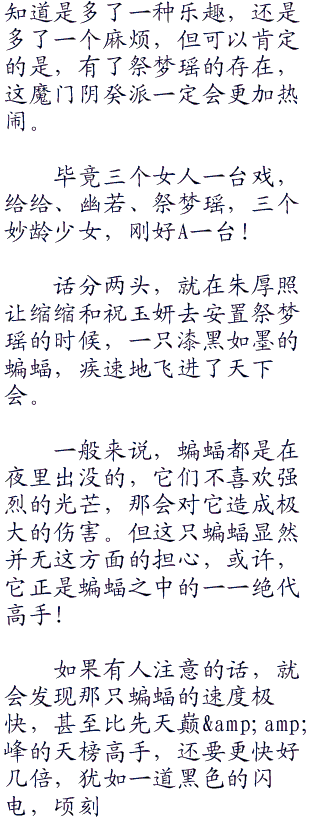 知道是多了一种乐趣，还是
多了一个麻烦，但可以肯定
的是，有了祭梦瑶的存在，
这魔门阴癸派一定会更加热
闹。
毕竟三个女人一台戏，
绐绐、幽若、祭梦瑶，三个
妙龄少女，刚好A一台！
话分两头，就在朱厚照
让缩缩和祝玉妍去安置祭梦
瑶的时候，一只漆黑如墨的
蝙蝠，疾速地飞进了天下
会。
一般来说，蝙蝠都是在
夜里出没的，它们不喜欢强
烈的光芒，那会对它造成极
大的伤害。但这只蝙蝠显然
并无这方面的担心，或许，
它正是蝙蝠之中的一一绝代
高手！
如果有人注意的话，就
会发现那只蝙蝠的速度极
快，甚至比先天巅&amp;amp;
峰的天榜高手，还要更快好
几倍，犹如一道黑色的闪
电，顷刻